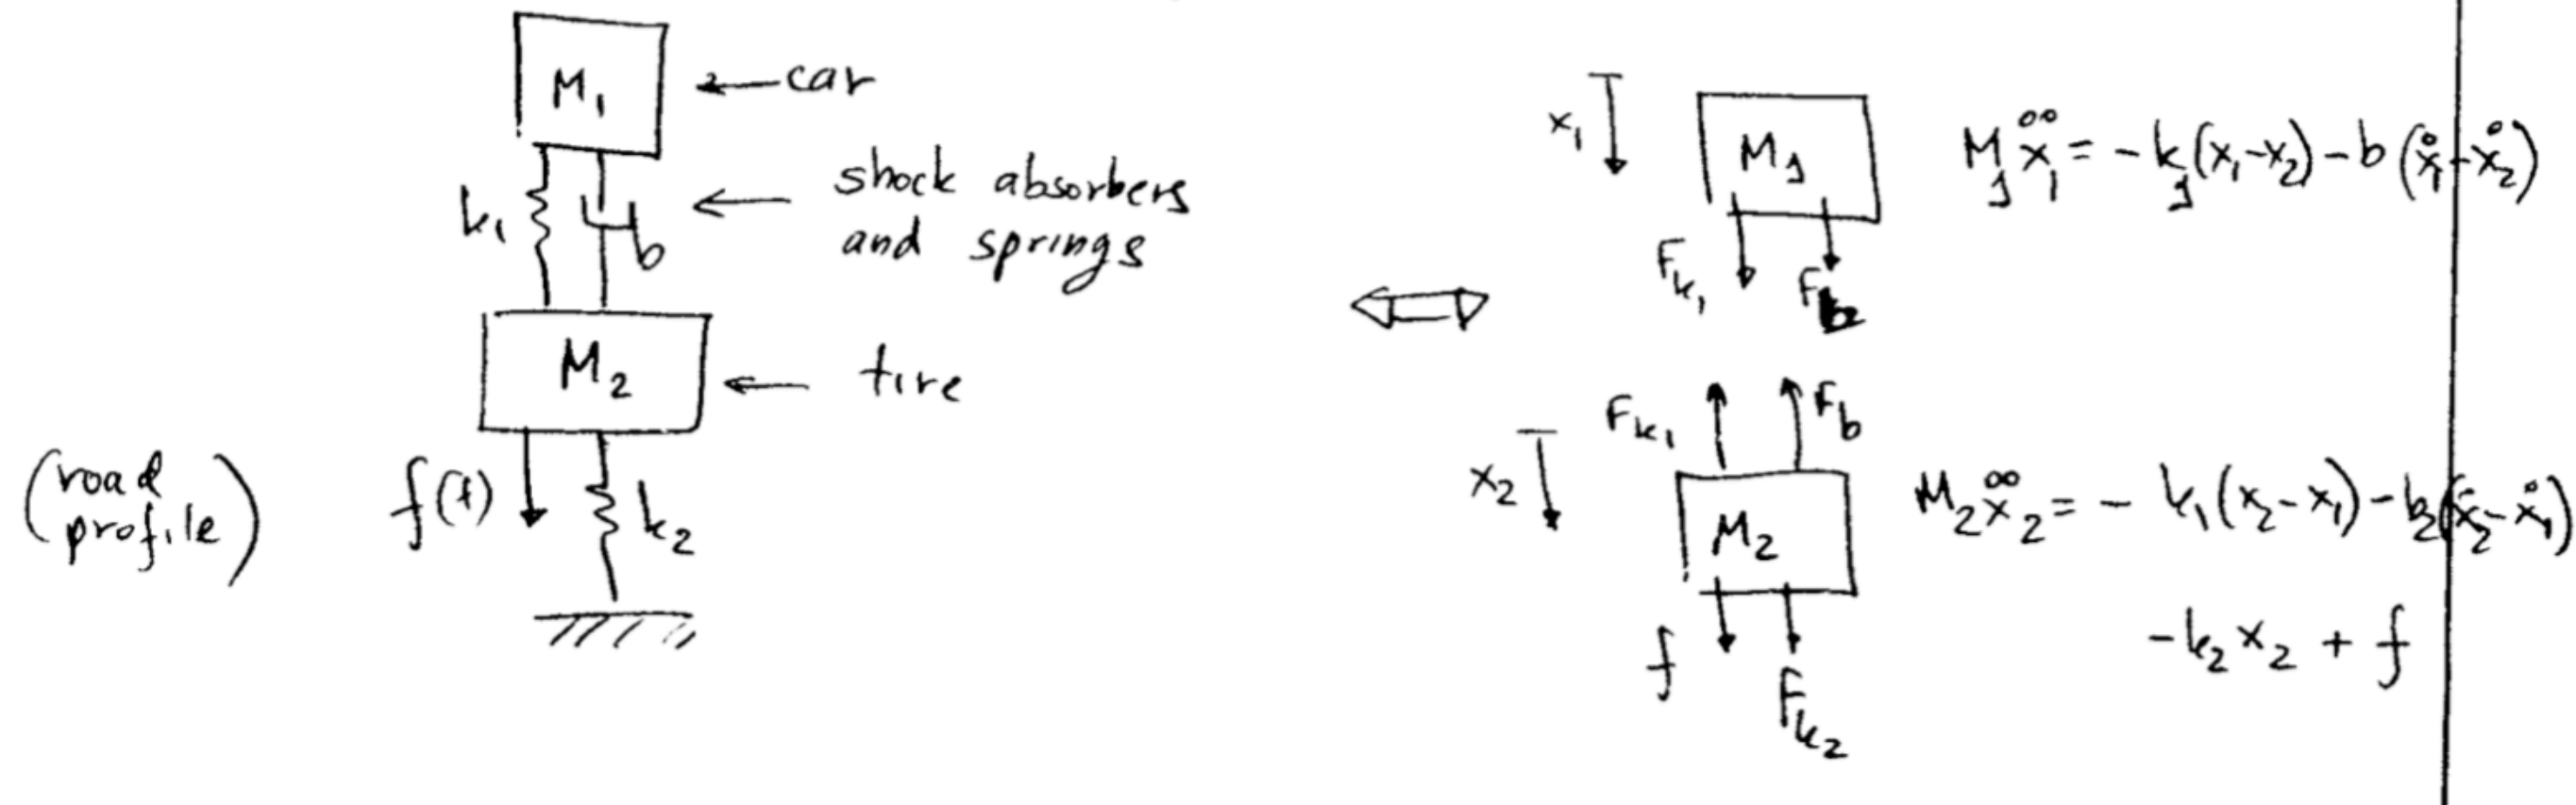 M₁
← car
k₁
b
← shock absorbers
and springs
M₂
← tire
(road
profile)
f(t)
k₂
x₁
M₁
F_k₁
F_b
M₁ẍ₁ = - k₁(x₁-x₂) - b(ẋ₁-ẋ₂)
F_k₁
F_b
x₂
M₂
f
F_k₂
M₂ẍ₂ = - k₁(x₂-x₁) - b₂(ẋ₂-ẋ₁)
-k₂x₂ + f